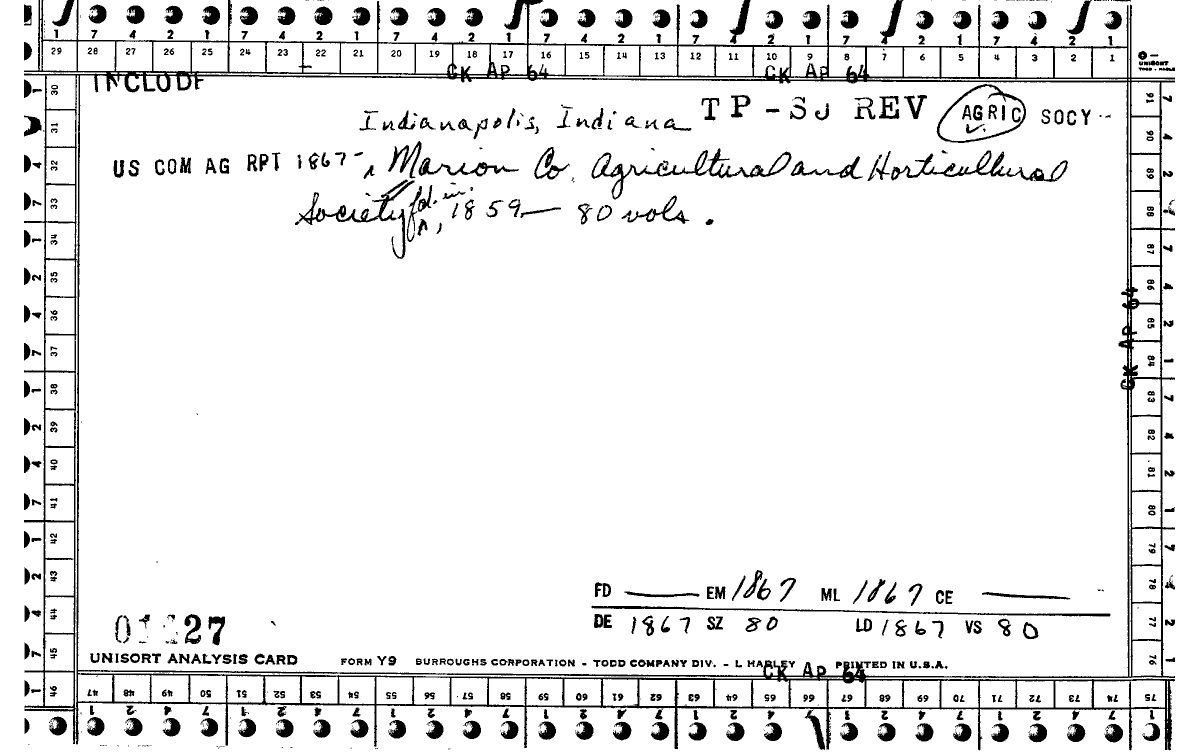 1 7 4 2 1 7 4 2 1 7 4 2 1 7 4 2 1 7 4 2 1 7 4 2 1 7 4 2 1
29 28 27 26 25 24 23 22 21 20 19 18 17 16 15 14 13 12 11 10 9 8 7 6 5 4 3 2 1
CK AP 64 CK AP 64
UNISORT
INCLUDE
Indianapolis, Indiana TP-SJ REV AGRIC SOCY
US COM AG RPT 1867- Marion Co. Agricultural and Horticultural
Society, fd. in 1859 — 80 vols.
30 31 32 33 34 35 36 37 38 39 40 41 42 43 44 45 46
91 90 89 88 87 86 85 84 83 82 81 80 79 78 77 76
CK AP 64
FD — EM 1867 ML 1867 CE —
DE 1867 SZ 80 LD 1867 VS 80
UNISORT ANALYSIS CARD FORM Y9 BURROUGHS CORPORATION - TODD COMPANY DIV. - L HARLEY PRINTED IN U.S.A.
CK AP 64
47 48 49 50 51 52 53 54 55 56 57 58 59 60 61 62 63 64 65 66 67 68 69 70 71 72 73 74 75